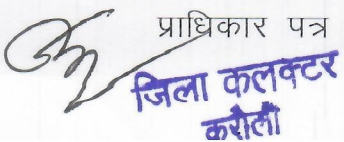 प्राधिकार पत्र
जिला कलक्टर
करौली